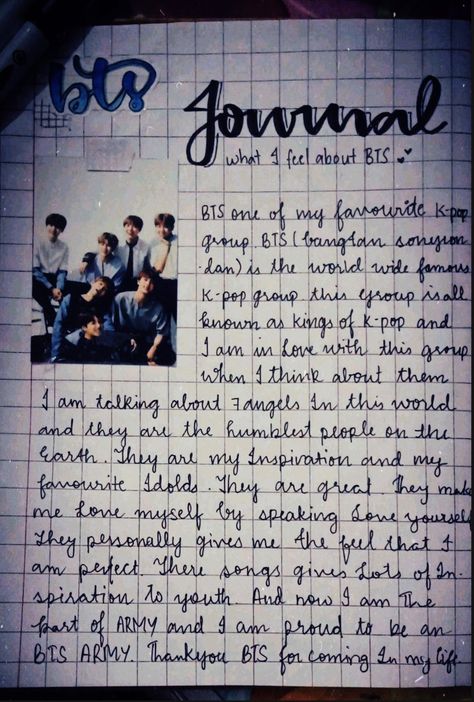 bts
Journal
what I feel about BTS
BTS one of my favourite K-pop
group. BTS (bangtan sonyeon
dan) is the world wide famous
K-pop group. this group is all
known as kings of K-pop and
I am in Love with this group
When I think about them
I am talking about 7 angels In this world
and they are the humblest people on the
Earth. They are my Inspiration and my
favourite Idolds. They are great. They make
me Love myself by speaking Love yourself
They personally gives me the feel that I
am perfect. There songs gives Lots of In-
spiration to youth. And now I am The
part of ARMY and I am proud to be an
BTS ARMY. Thankyou BTS for coming In my life